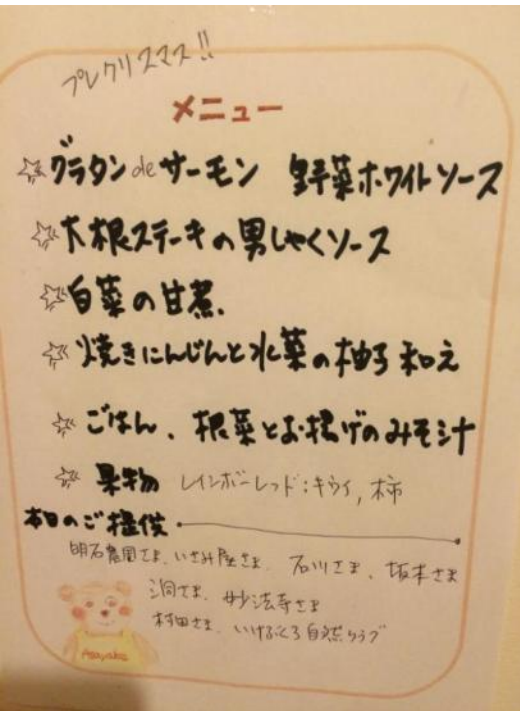 プレクリスマス!!
メニュー
☆グラタンdeサーモン 野菜ホワイトソース
☆大根ステーキの男しゃくソース
☆白菜の甘煮.
☆焼きにんじんと水菜の柚子和え
☆ごはん、根菜とお揚げのみそ汁
☆果物 レインボーレッド:キウイ,柿
本日のご提供
明石農園さま、いさみ屋さま、石川さま、坂本さま
洞さま、妙法寺さま
村田さま、いけぶくろ自然クラブ
Asayake